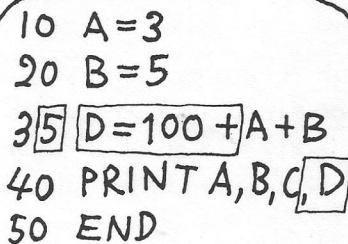 10 A=3
20 B=5
35 D=100+A+B
40 PRINT A,B,C,D
50 END